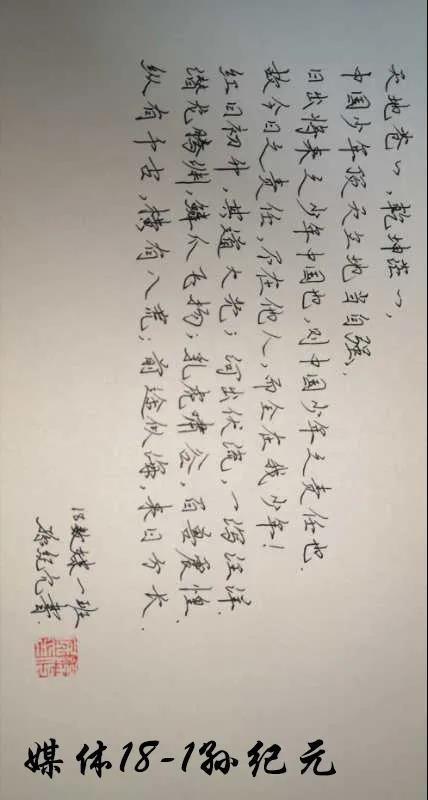 天地苍々,乾坤茫々,
中国少年顶天立地当自强.
日出将来之少年中国也,则中国少年之责任也.
故今日之责任,不在他人,而全在我少年!
红日初升,其道大光;河出伏流,一泻汪洋.
潜龙腾渊,鳞爪飞扬;乳虎啸谷,百兽震惶.
纵有千古,横有八荒;前途似海,来日方长.
18数媒一班
孙纪元書
媒体18-1孙纪元